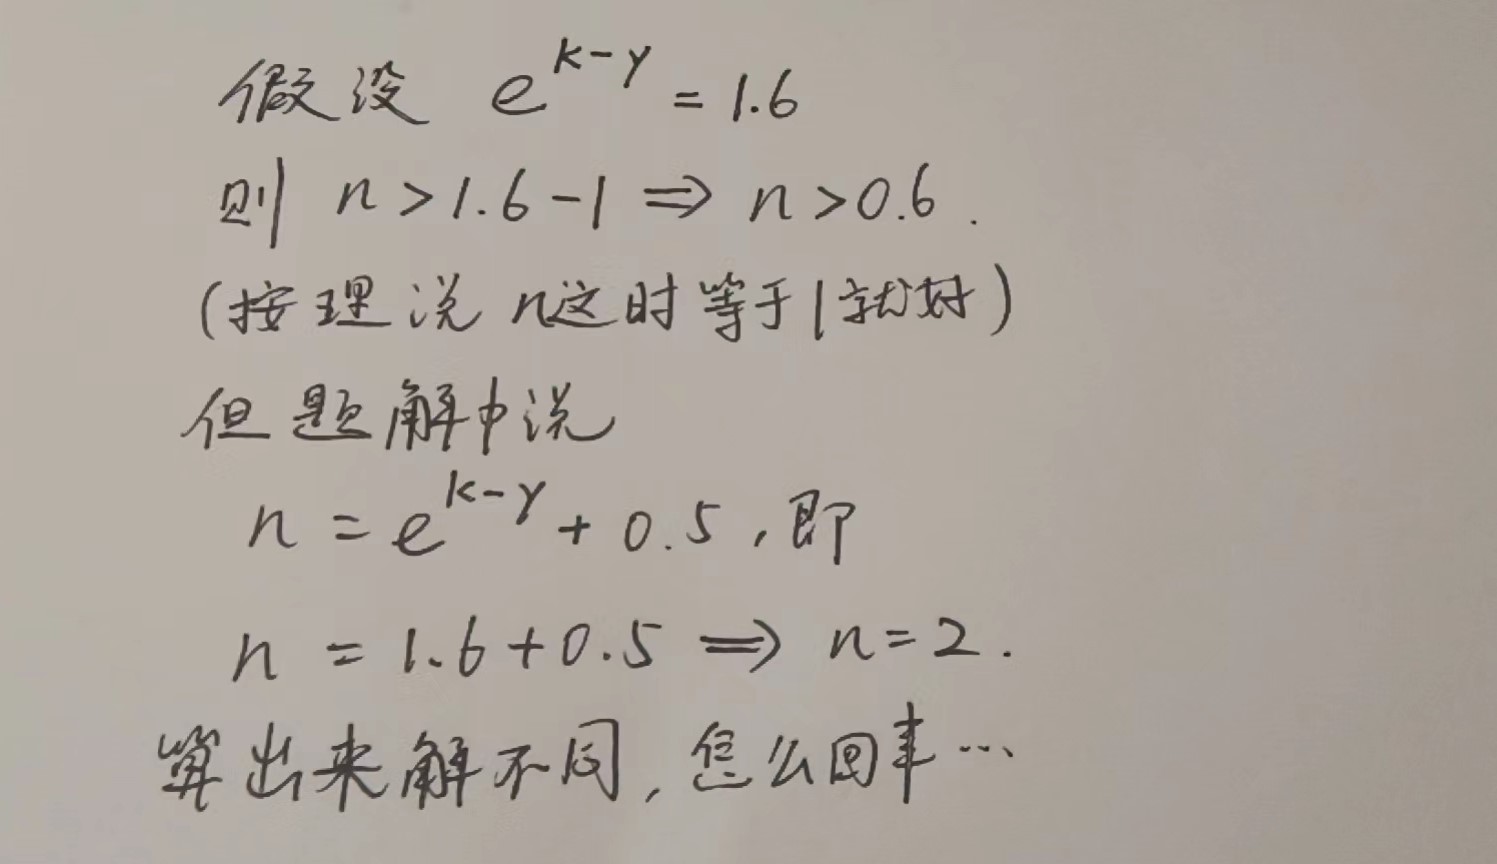 假设 e^{k-γ} = 1.6
则 n > 1.6 - 1 ⇒ n > 0.6 .
(按理说 n这时等于1就好)
但题解中说
n = e^{k-γ} + 0.5 , 即
n = 1.6 + 0.5 ⇒ n = 2 .
算出来解不同, 怎么回事…